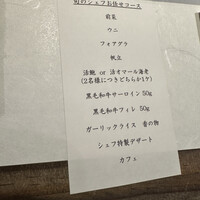 旬のシェフお任せコース
前菜
ウニ
フォアグラ
帆立
活鮑 or 活オマール海老
(2名様につきどちらか1ケ)
黒毛和牛サーロイン 50g
黒毛和牛フィレ 50g
ガーリックライス 香の物
シェフ特製デザート
カフェ